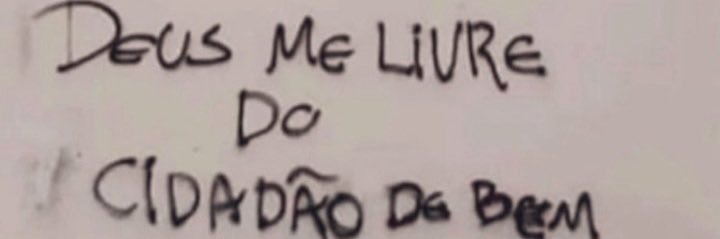 DEUS ME LIVRE
DO
CIDADÃO DE BEM